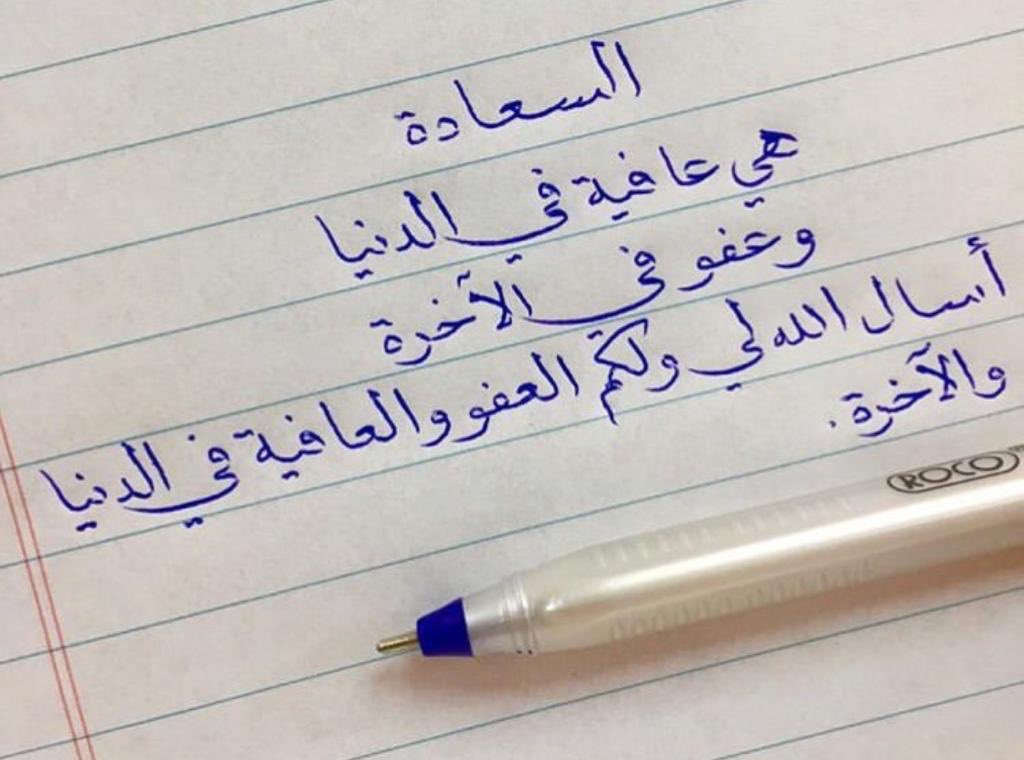 السعادة
هي عافية في الدنيا
وعفو في الآخرة
أسال الله لي ولكم العفو والعافية في الدنيا
والآخرة.
ROCO